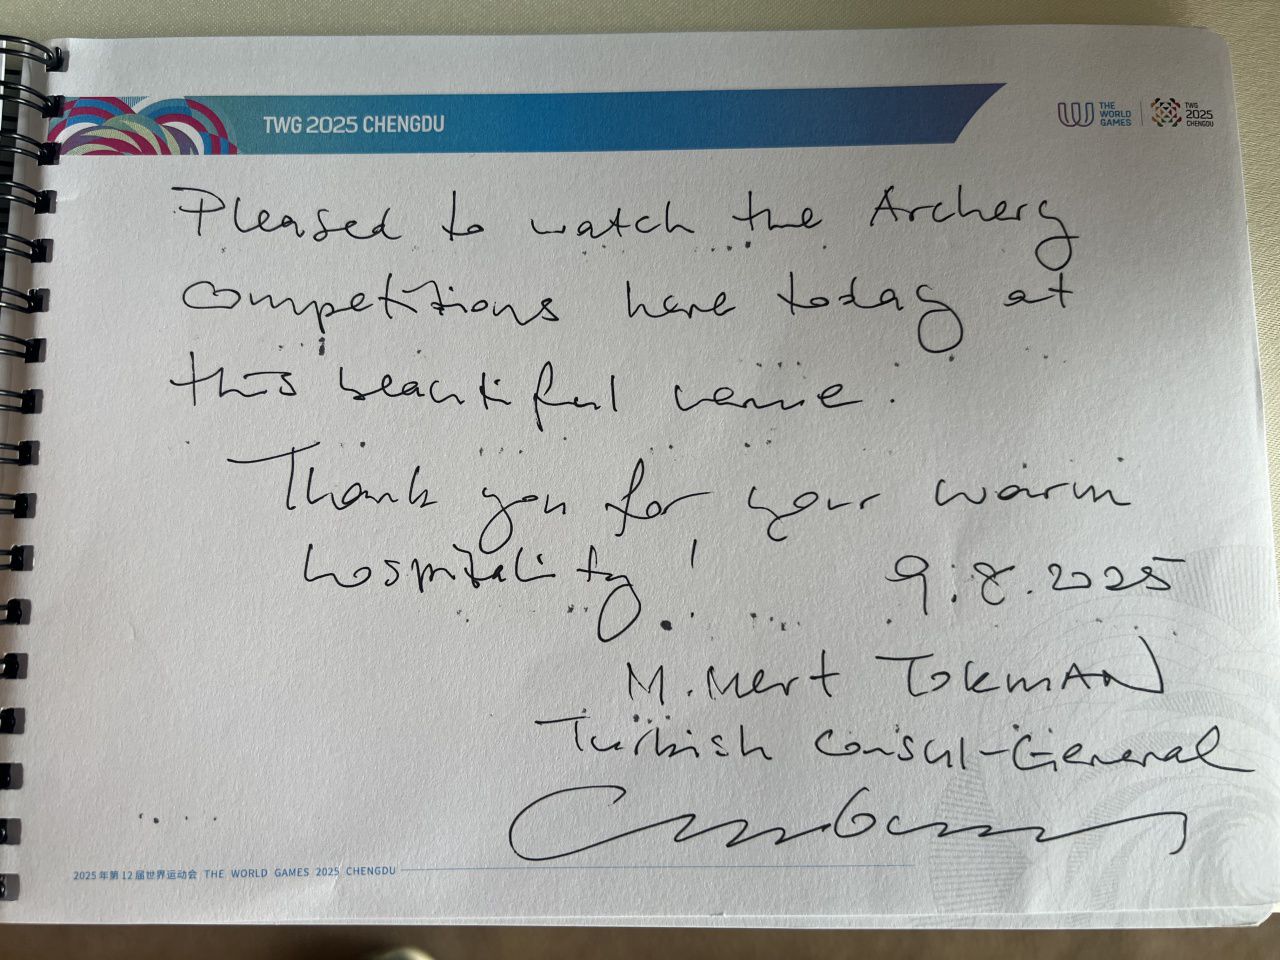 TWG 2025 CHENGDU
THE
WORLD
GAMES
TWG
2025
CHENGDU
Pleased to watch the Archery
competitions here today at
this beautiful venue.
Thank you for your warm
hospitality!
9.8.2025
M. Mert TOKMAN
Turkish Consul-General
2025年第12届世界运动会 THE WORLD GAMES 2025 CHENGDU